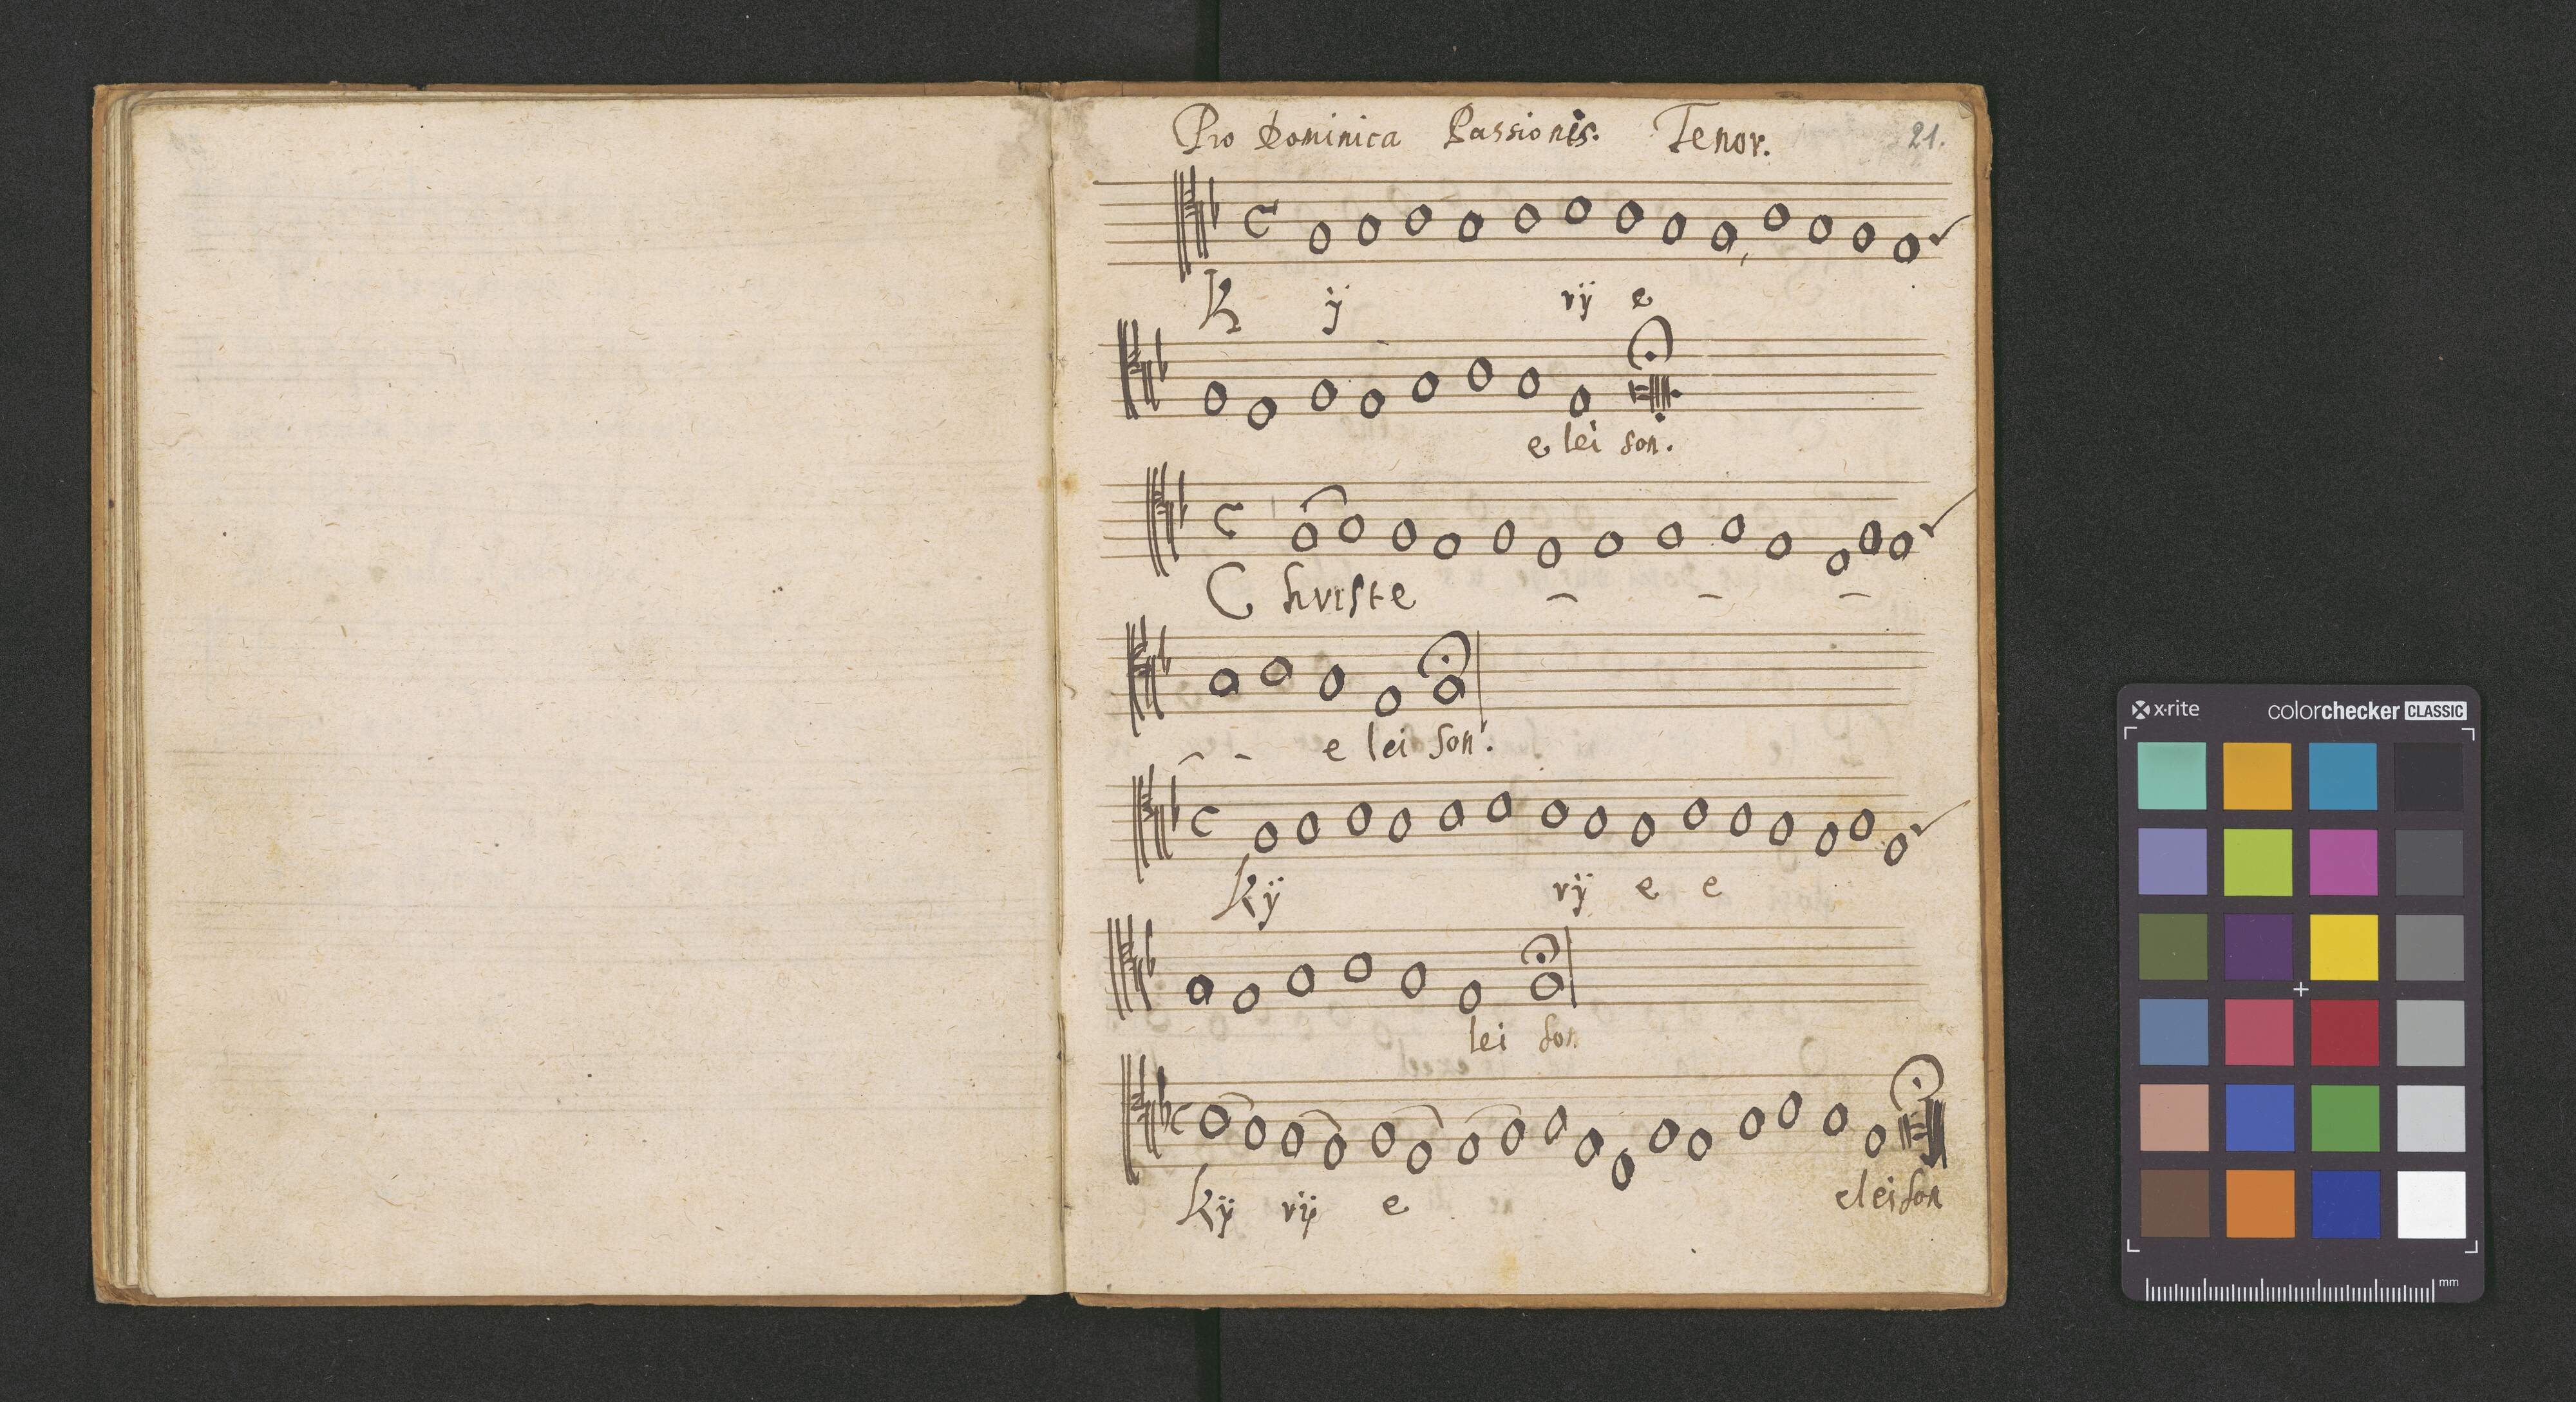 Pro Dominica Passionis. Tenor. 21.
K ÿ rÿ e
e lei son.
Christe
e lei son.
Kÿ rÿ e e
lei son
Kÿ rÿ e eleison
x·rite colorchecker CLASSIC
mm